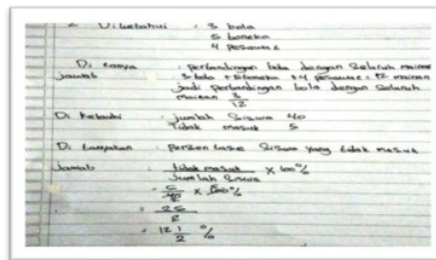 2 Diketahui : 3 bola
5 boneka
4 pesawat
Di tanya : perbandingan bola dengan Seluruh mainan
Jawab 3 bola + 5 boneka + 4 pesawat = 12 mainan
jadi perbandingan bola dengan Seluruh
mainan 3/12
Di Ketahui : jumlah Siswa 40
Tidak masuk 5
Di tanyakan : persentase Siswa yang tidak masuk
Jawab tidak masuk / Jumlah Siswa x 100%
= 5/40 x 100%
= 25/2
= 12 1/2 %